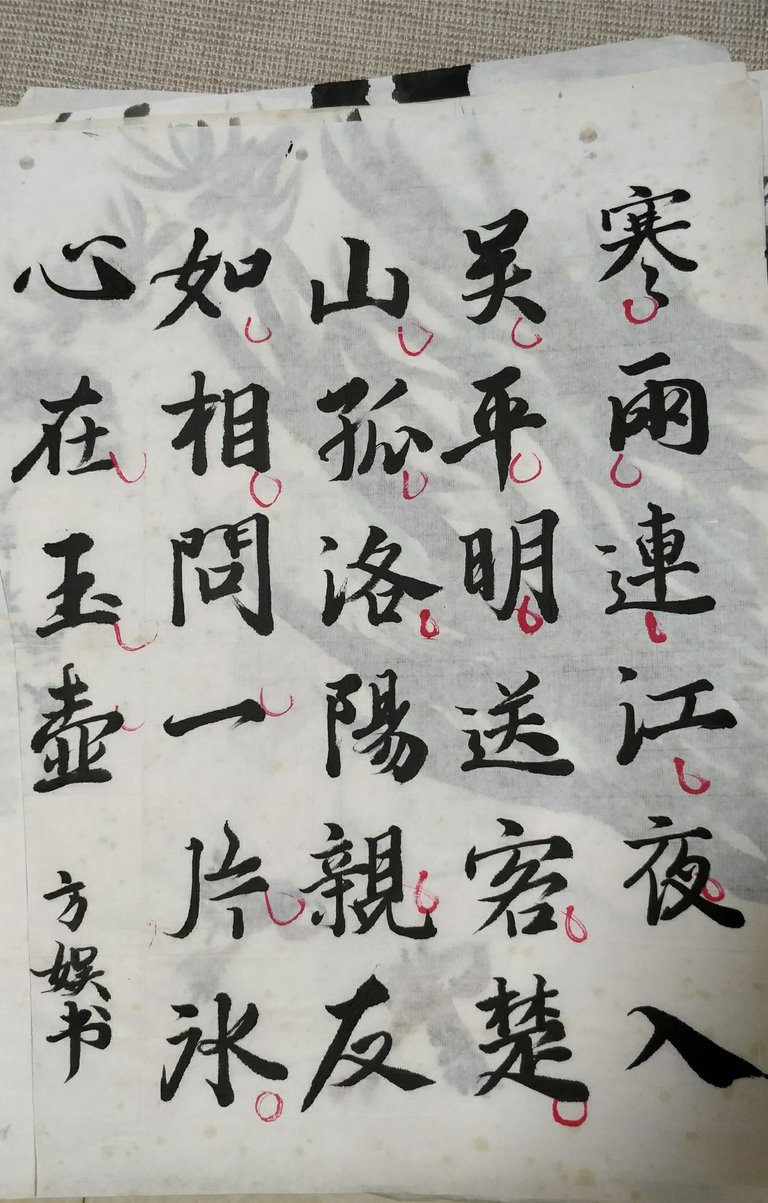 寒雨連江夜入
吴平明送客楚
山孤洛陽親友
如相問一片冰
心在玉壺
方娱书